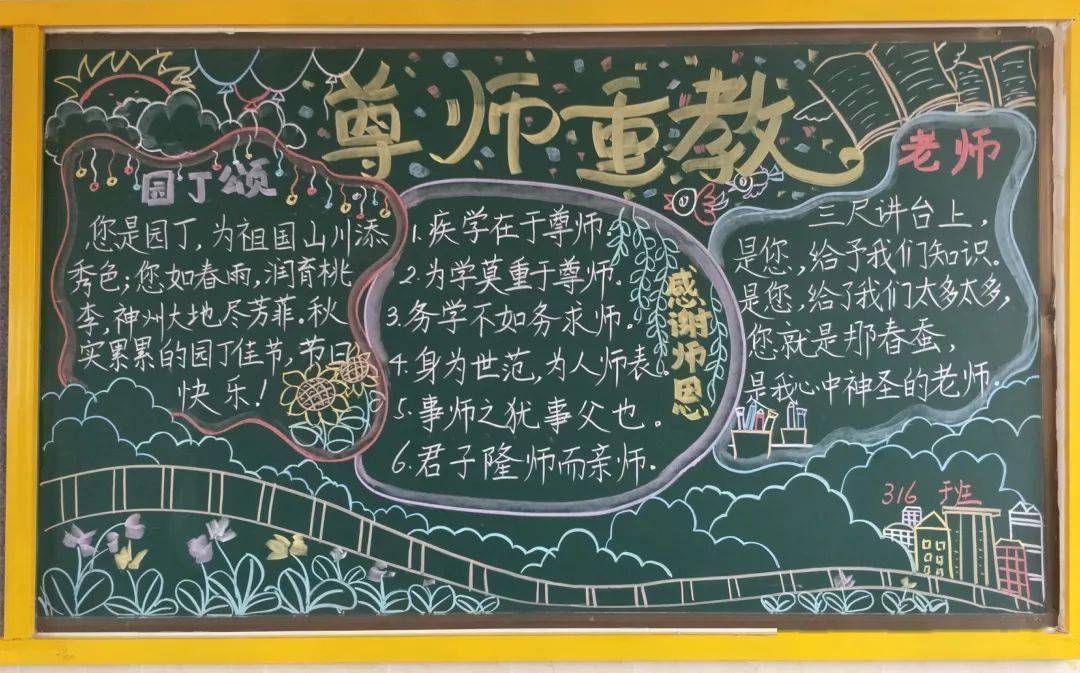 尊师重教
园丁颂
您是园丁,为祖国山川添
秀色;您如春雨,润育桃
李,神州大地尽芳菲.秋
实累累的园丁佳节,节日
快乐!
1.疾学在于尊师.
2.为学莫重于尊师.
3.务学不如务求师。
4.身为世范,为人师表。
5.事师之犹事父也。
6.君子隆师而亲师.
感谢师恩
老师
三尺讲台上,
是您,给予我们知识。
是您,给了我们太多太多,
您就是那春蚕,
是我心中神圣的老师.
316 班